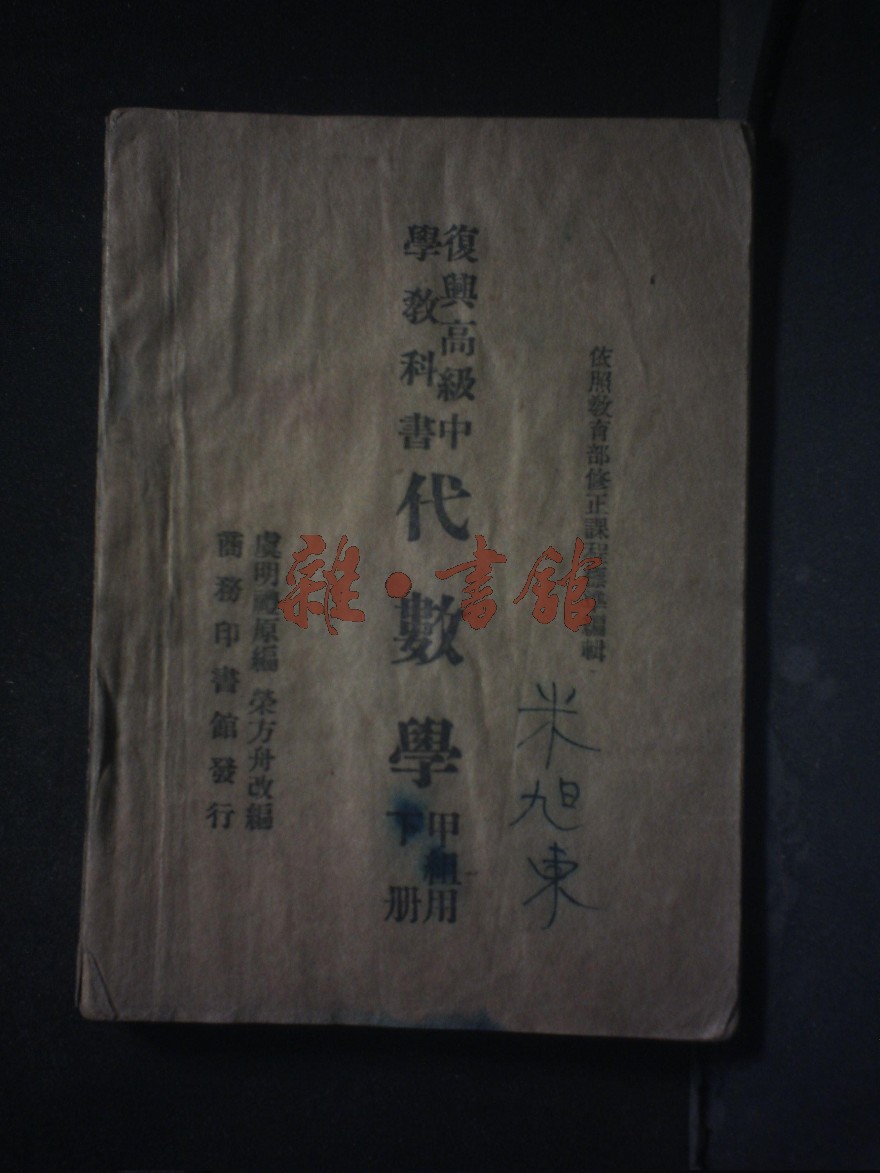 依照教育部修正課程標準編輯
米旭東
復興高級中
學教科書
代數學
甲組用
下册
虞明禮原編 榮方舟改編
商務印書館發行
雜·書館